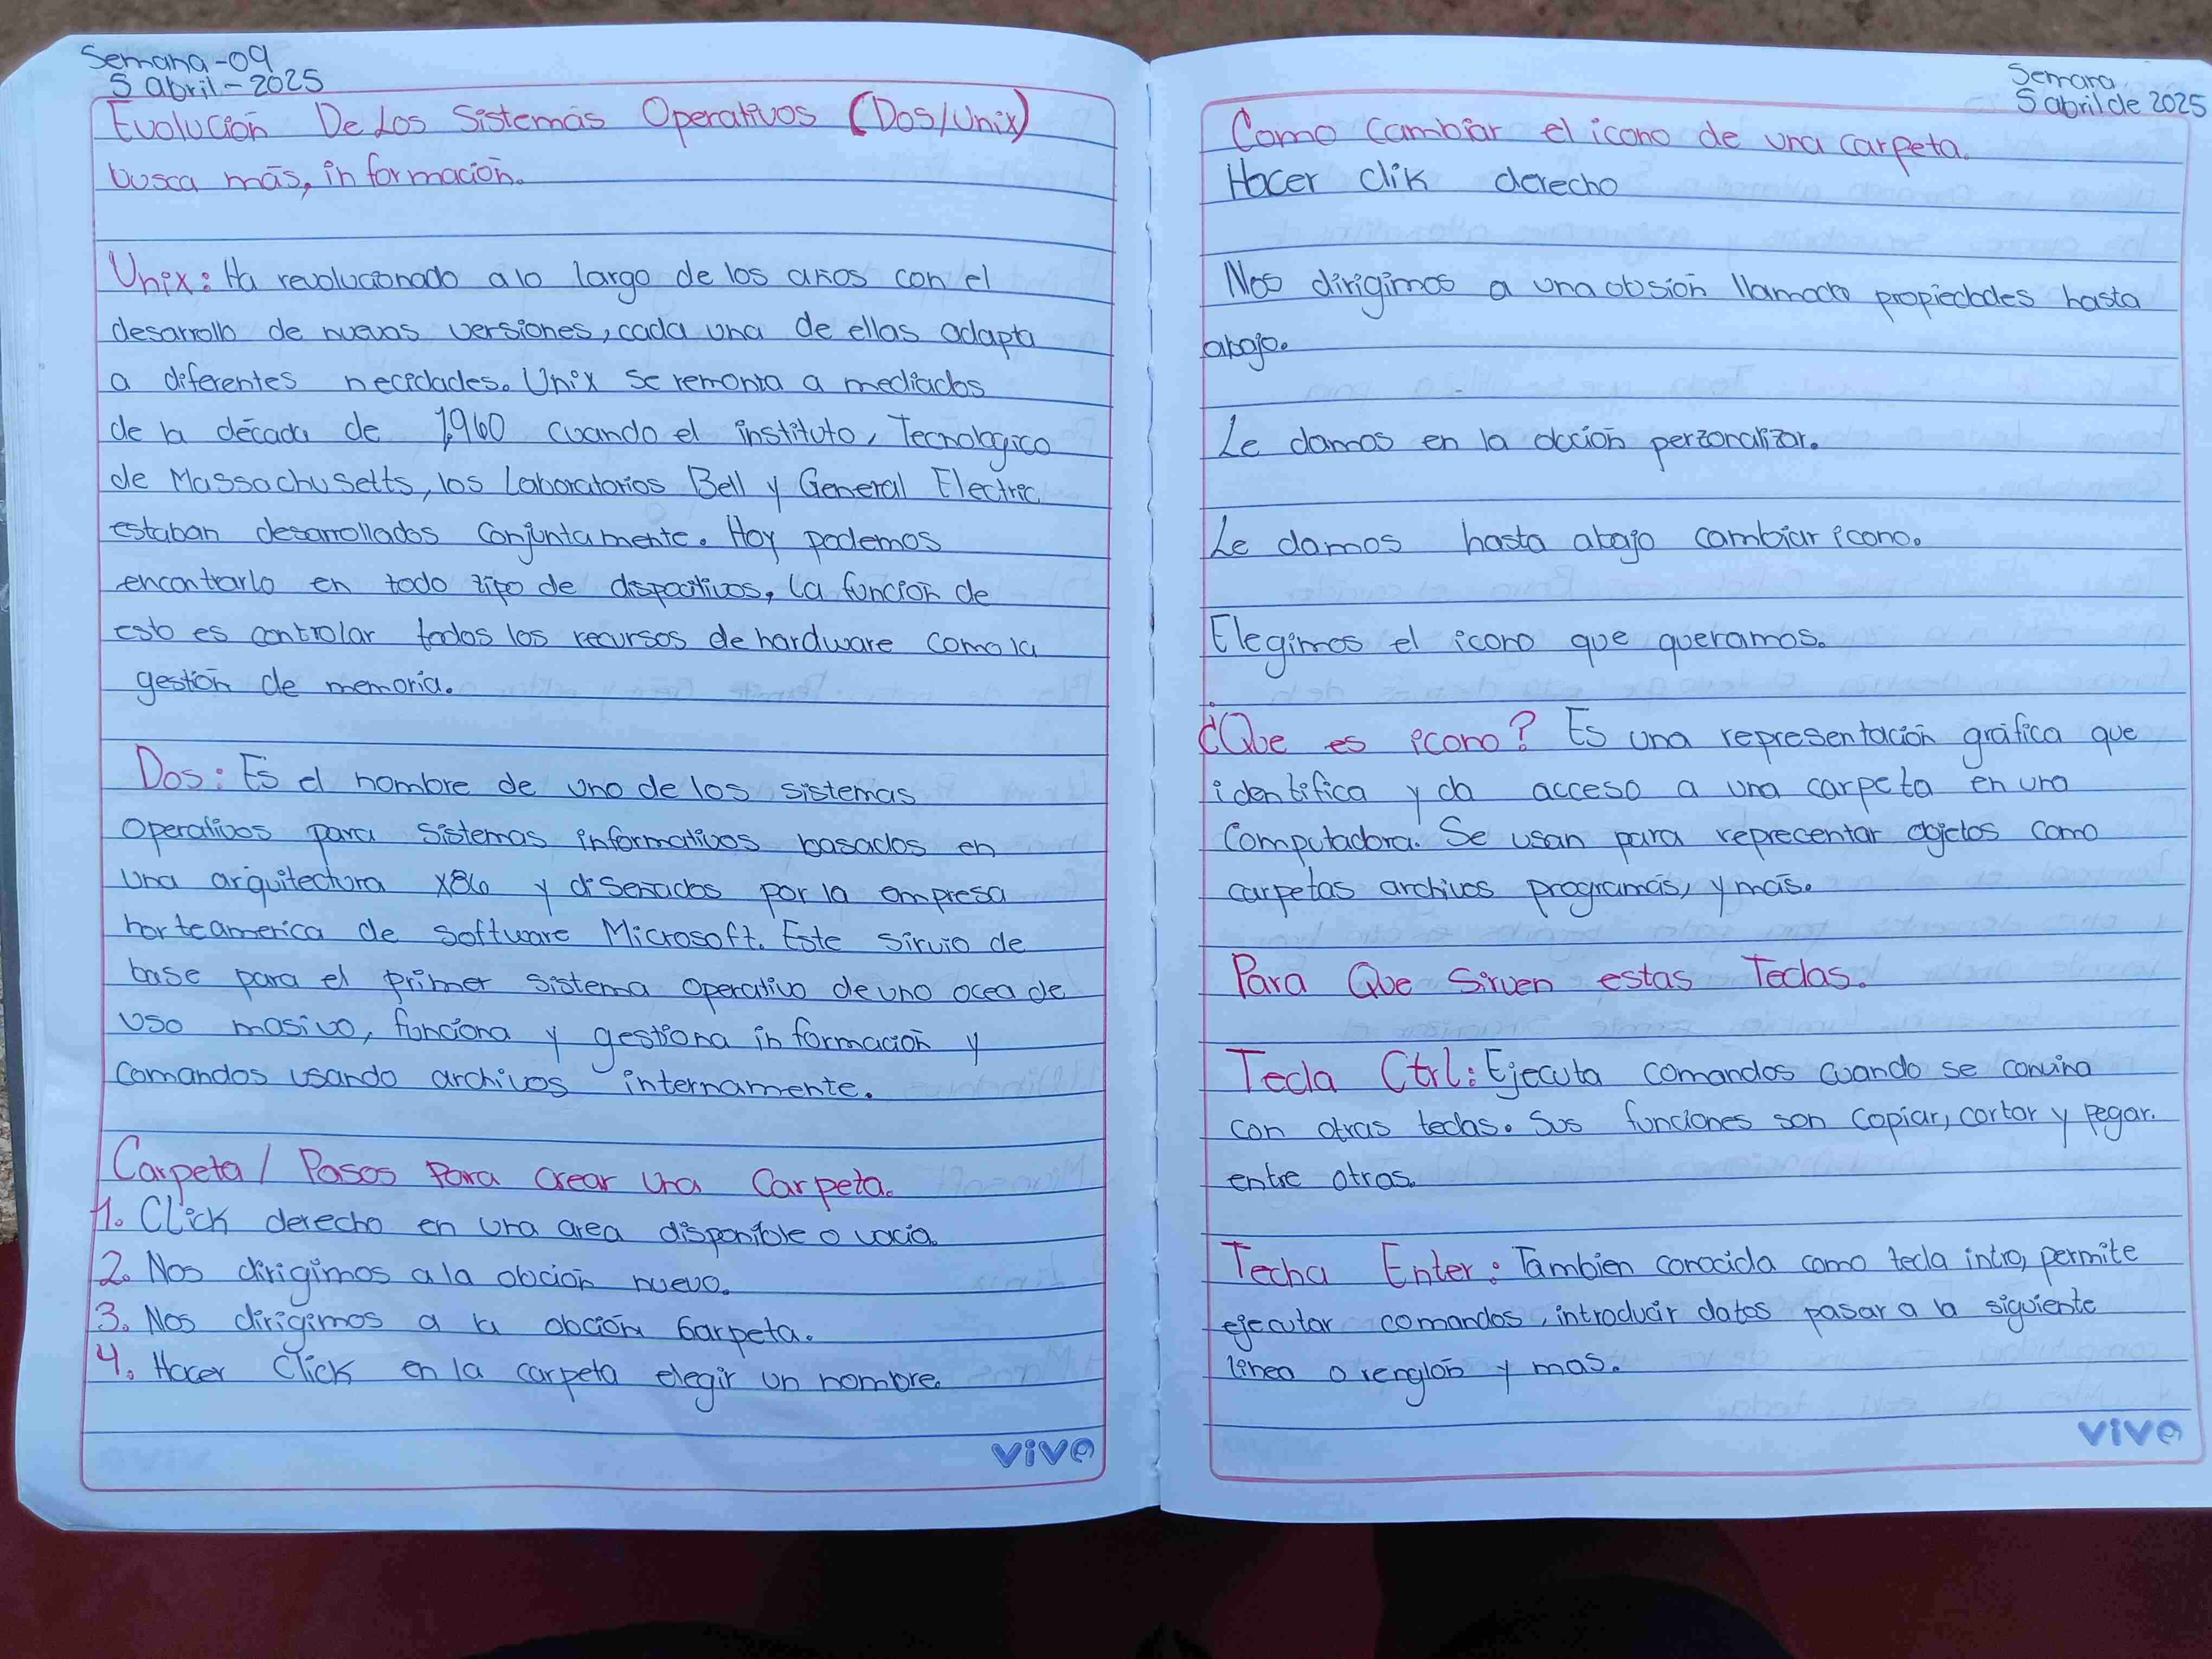 Semana-09
5 abril-2025
Evolución De Los Sistemás Operativos (Dos/Unix)
busca más, información.
Unix: Ha revolucionado a lo largo de los años con el
desarrollo de nuevas versiones, cada una de ellas adapta
a diferentes necidades. Unix se remonta a mediados
de la década de 1,960 cuando el instituto, Tecnologico
de Massachusetts, los Laboratorios Bell y General Electric
estaban desarrollados conjuntamente. Hoy podemos
encontrarlo en todo tipo de dispocitivos, la función de
esto es controlar todos los recursos de hardware como la
gestión de memoria.
Dos: Es el nombre de uno de los sistemas
operativos para sistemas informativos basados en
una arquitectura x86 y diseñados por la empresa
norteamerica de software Microsoft. Este sirvio de
base para el primer sistema operativo de uno ocea de
uso masivo, funciona y gestiona información y
comandos usando archivos internamente.
Carpeta/ Pasos Para crear una Carpeta.
1. Click derecho en una area disponible o vacia.
2. Nos dirigimos a la obción nuevo.
3. Nos dirigimos a la obción Carpeta.
4. Hacer Click en la carpeta elegir un nombre.
vive
Semana
5 abril de 2025
Como cambiar el icono de una carpeta.
Hacer clik derecho
Nos dirigimos a una obsión llamada propiedades hasta
abajo.
Le damos en la obción perzonalizar.
Le damos hasta abajo cambiar icono.
Elegimos el icono que queramos.
¿Que es icono? Es una representación gráfica que
identifica y da acceso a una carpeta en una
computadora. Se usan para representar objetos como
carpetas archivos programás, y más.
Para Que Sirven estas Teclas.
Tecla Ctrl: Ejecuta comandos cuando se convina
con otras teclas. Sus funciones son copiar, cortar y pegar.
entre otras.
Techa Enter: Tambien conocida como tecla intro, permite
ejecutar comandos, introducir datos pasar a la siguiente
linea o renglón y mas.
vive